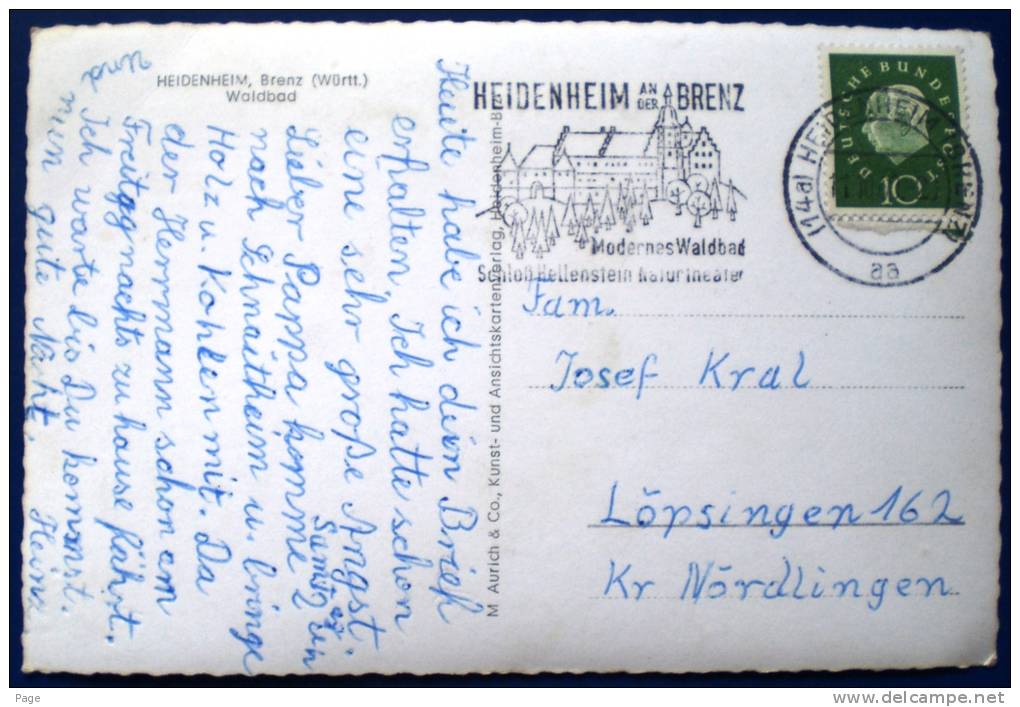 HEIDENHEIM, Brenz (Württ.)
Waldbad
HEIDENHEIM AN DER BRENZ
Modernes Waldbad
Schloß Hellenstein Naturtheater
DEUTSCHE BUNDESPOST
10
(14a) HEIDENHEIM (BRENZ)
aa
M Aurich & Co., Kunst- und Ansichtskartenverlag, Heidenheim-B
Heute habe ich dein Brief
erhalten, Ich hatte schon
eine sehr große Angst.
Lieber Pappa komme
nach Schnaitheim u. bringe
Holz u. Kohlen mit. Da
der Herrmann schon am
Freitggnachts zu hause fährt.
Ich warte bis Du kommst.
und
nun gute Nacht. Heinz
Fam.
Josef Kral
Löpsingen 162
Kr Nördlingen
Page
www.delcampe.net